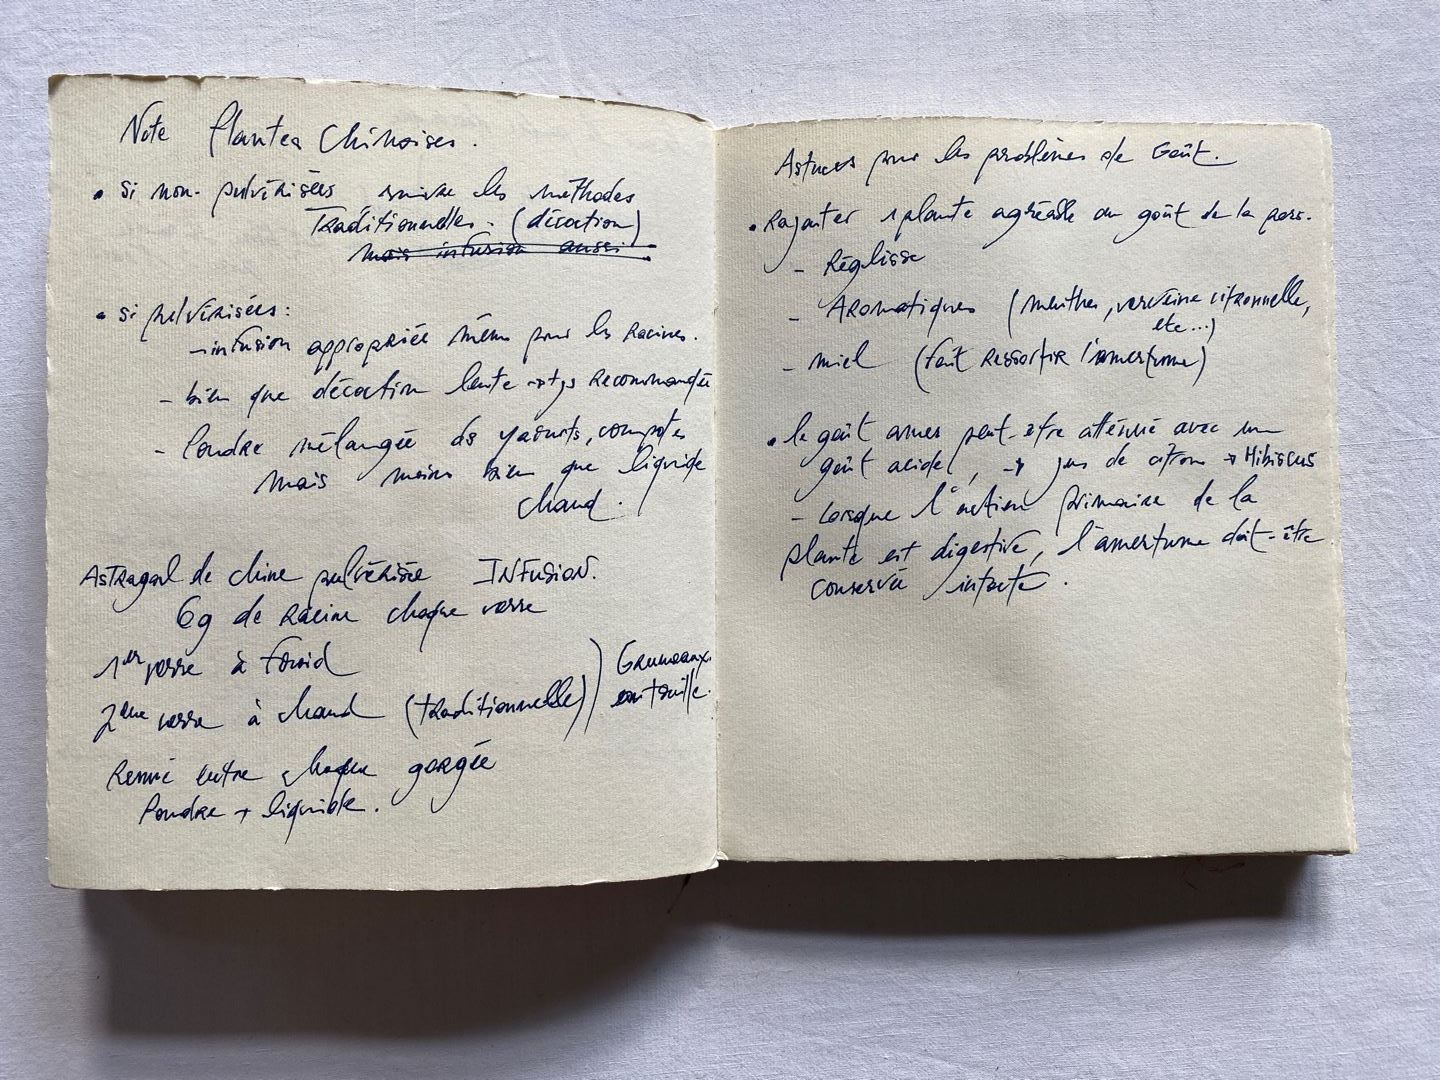 Note Plantes Chinoises.
• Si non-pulvérisées suivre les méthodes
Traditionnelles. (décoction)
mais infusion aussi
• Si pulvérisées:
- infusion appropriée même pour les racines.
- bien que décoction lente → tjs recommandée
- Poudre mélangée ds yaourts, compotes
mais moins bien que liquide
chaud.
Astragal de chine pulvérisée INFUSION.
6g de racine chaque verre
1er verre à froid
2ème verre à chaud (traditionnelle))
Grumeaux.
Remué entre chaque gorgée
Poudre + liquide.
Astuces pour les problèmes de Goût.
• Rajouter 1 plante agréable au goût de la pers.
- Réglisse
- Aromatiques (menthes, verveine citronnelle,
etc...)
- miel (fait ressortir l'amertume)
• le goût amer peut-être atténué avec un
goût acide, → jus de citron → Hibiscus
- Lorsque l'action primaire de la
plante est digestive, l'amertume doit-être
conservée intacte.